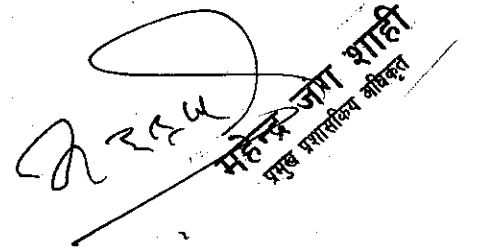 महेन्द्र जंग शाही
प्रमुख प्रशासकिय अधिकृत